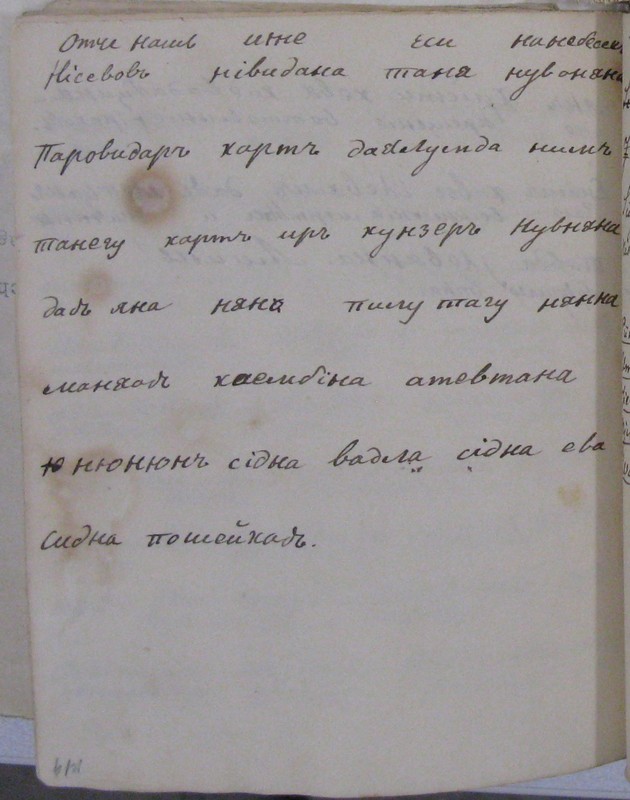 Отче нашъ иже еси нанебесех
Нісевовъ нівидана таня нувоняна
Паровидаръ хартъ даялумда нимъ
танегу хартъ иръ хунзеръ нувняна
дадъ яна няна пилу тагу нянна
маняодъ хаембіна атевтана
июнюнъ сідна вадла сідна ева
сидна пошейхадъ.